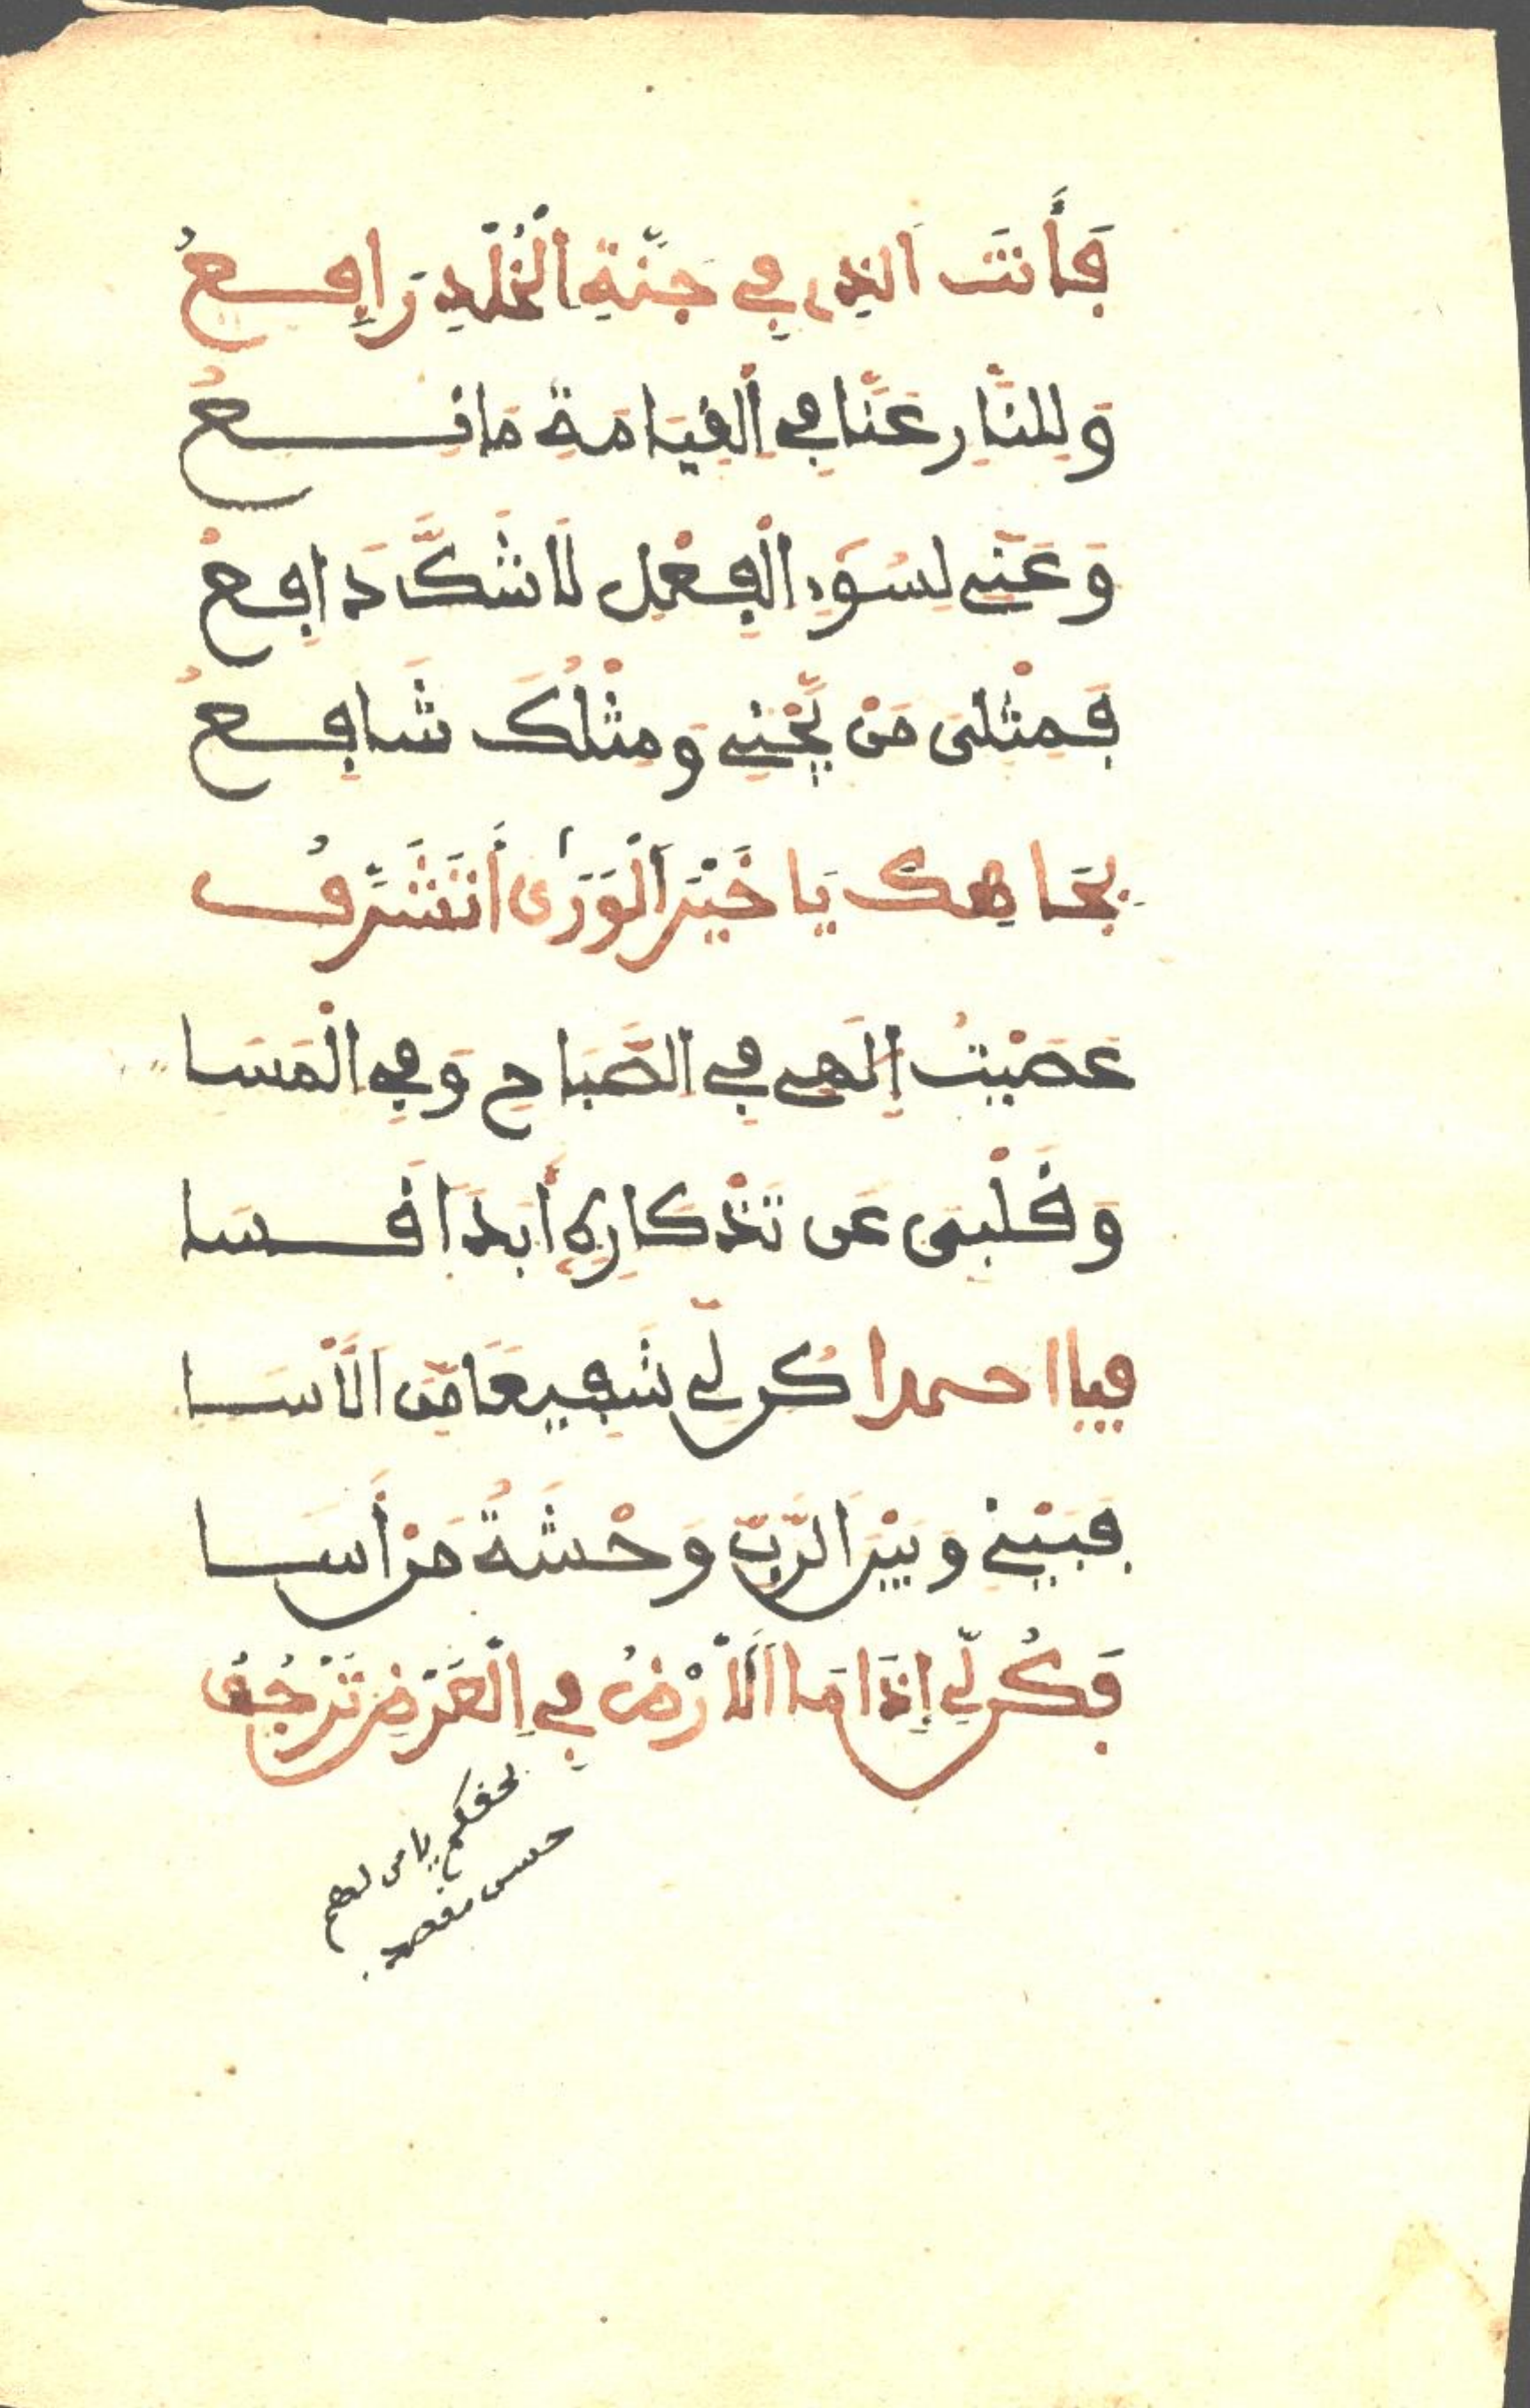 فَأَنتَ الذِي فِي جَنَّةِ الْخُلْدِ رَافِعُ
وَلِلنَّارِ عَنَّا فِي الْقِيَامَةِ مَانِعُ
وَعَنِّي لِسُوَءِ الْفِعْلِ لَا شَكَّ دَافِعْ
فَمِثْلِى مَنْ يَّجْنِي وَمِثْلُكَ شَافِعُ
بِجَاهِكَ يَا خَيْرَ الْوَرَىٰ أَتَشَرَّفُ
عَصَيْتُ إِلَهِي فِي الصَّبَاحِ وَفِي الْمَسَا
وَقَلْبِى عَن تَذْكَارِهِ أَبَدًا قَسَا
فيا احمدا كُن لِّي شَفِيعًا مِّنَ الْأَسَا
فَبَيْنِي وَبَيْنَ الرَّبِّ وَحْشَةُ مَنْ أَسَا
فَكُن لِّي إِذَا مَا الْأَرْضُ فِي الْعَرْضِ تَرْجُفُ
بحقكم يا من لهم
حسن مقصد